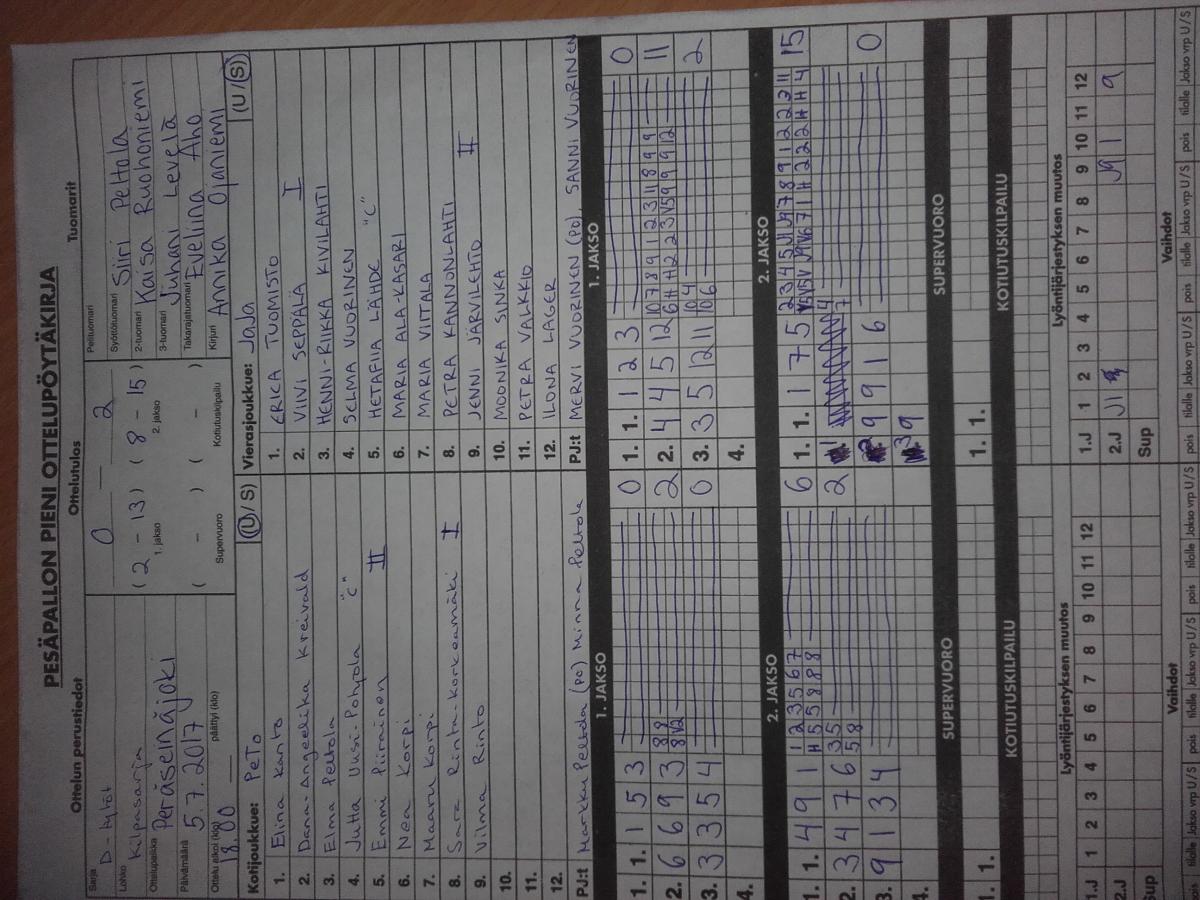 PESÄPALLON PIENI OTTELUPÖYTÄKIRJA
Ottelun perustiedot
Sarja D-tytöt
Lohko Kilpasarja
Ottelupaikka Peräseinäjoki
Päivämäärä 5.7.2017
Ottelu alkoi (klo) 18.00 päättyi (klo)
Ottelutulos
0 – 2
(2 – 13) (8 – 15)
1. jakso 2. jakso
( – ) ( – )
Supervuoro Kotiutuskilpailu
Tuomarit
Pelituomari
Syöttötuomari Siiri Peltola
2-tuomari Kaisa Ruohoniemi
3-tuomari Juhani Levelä
Takarajatuomari Eveliina Aho
Kirjuri Annika Ojaniemi
Kotijoukkue: PeTo (U/S)
1. Elina Kanto
2. Dana-Angeelika Kreivald
3. Elma Peltola
4. Jutta Uusi-Pohjola "C"
5. Emmi Piirainen II
6. Nea Korpi
7. Maaru Korpi
8. Sara Rinta-Korkeamäki I
9. Vilma Rinto
10.
11.
12.
PJ:t Markku Peltola (PO) Minna Peltola
Vierasjoukkue: JaJa (U/S)
1. ERICA TUOMISTO
2. VIIVI SEPPÄLÄ I
3. HENNI-RIIKKA KIVILAHTI
4. SELMA VUORINEN
5. HETAFIIA LÄHDE "C"
6. MARIA ALA-KASARI
7. MARIA VIITALA
8. PETRA KANNONLAHTI
9. JENNI JÄRVILEHTO II
10. MOONIKA SINKA
11. PETRA VALKKIO
12. ILONA LAGER
PJ:t MERVI VUORINEN (PO), SANNI VUORINEN
1. JAKSO
1. 1. 1 5 3 0
2. 6 6 9 3 2
3. 3 3 5 4 0
4.
1. JAKSO
1. 1. 1 2 3 0
2. 4 4 5 12 11
3. 3 5 12 11 2
4.
2. JAKSO
1. 1. 4 9 1 1 2 3 5 6 7 6
H 5 5 8 8 8
2. 3 4 7 6 3 5 2
5 8
3. 9 1 3 4
4.
2. JAKSO
1. 1. 1 7 5 15
9 9 1 6 0
SUPERVUORO
1. 1.
SUPERVUORO
1. 1.
KOTIUTUSKILPAILU
KOTIUTUSKILPAILU
Lyöntijärjestyksen muutos
1 2 3 4 5 6 7 8 9 10 11 12
1.J
2.J
Sup
Lyöntijärjestyksen muutos
1 2 3 4 5 6 7 8 9 10 11 12
1.J
2.J J1 J9 1 9
Sup
Vaihdot
pois tilalle Jakso vrp U/S pois tilalle Jakso vrp U/S pois tilalle Jakso vrp U/S
Vaihdot
pois tilalle Jakso vrp U/S pois tilalle Jakso vrp U/S pois tilalle Jakso vrp U/S